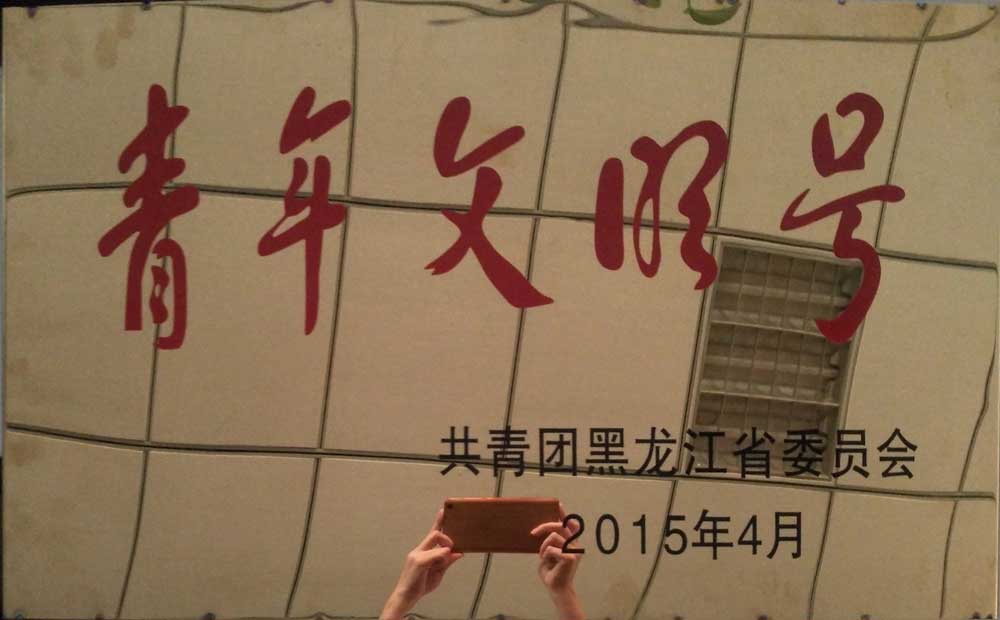 青年文明号
共青团黑龙江省委员会
2015年4月